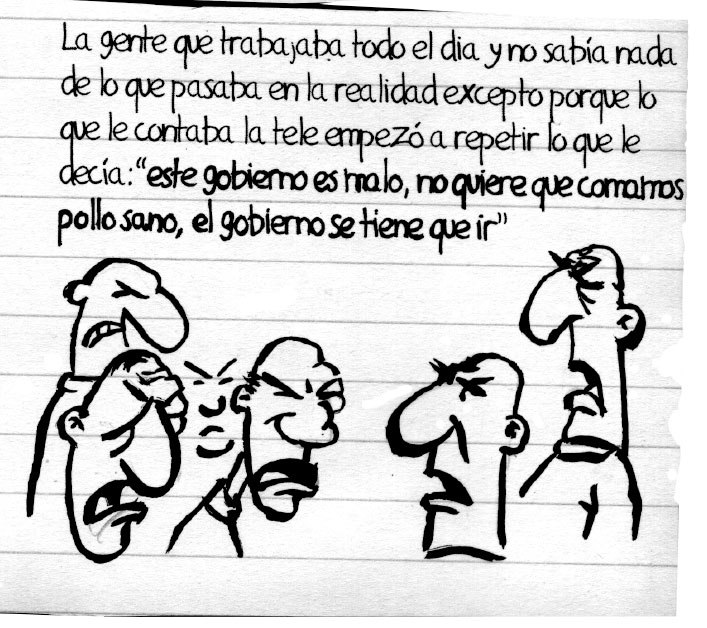 La gente que trabajaba todo el dia y no sabía nada
de lo que pasaba en la realidad excepto porque lo
que le contaba la tele empezó a repetir lo que le
decía: "este gobierno es malo, no quiere que comamos
pollo sano, el gobierno se tiene que ir"